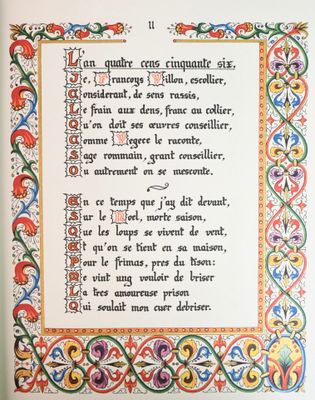 11
L'an quatre cens cinquante six,
Je, Françoys Villon, escollier,
Considerant, de sens rassis,
Le frain aux dens, franc au collier,
Qu'on doit ses œuvres conseillier,
Comme Vegece le raconte,
Sage rommain, grant conseillier,
Ou autrement on se mesconte.
En ce temps que j'ay dit devant,
Sur le Noel, morte saison,
Que les loups se vivent de vent,
Et qu'on se tient en sa maison,
Pour le frimas, pres du tison:
Me vint ung vouloir de briser
La tres amoureuse prison
Qui soulait mon cuer debriser.